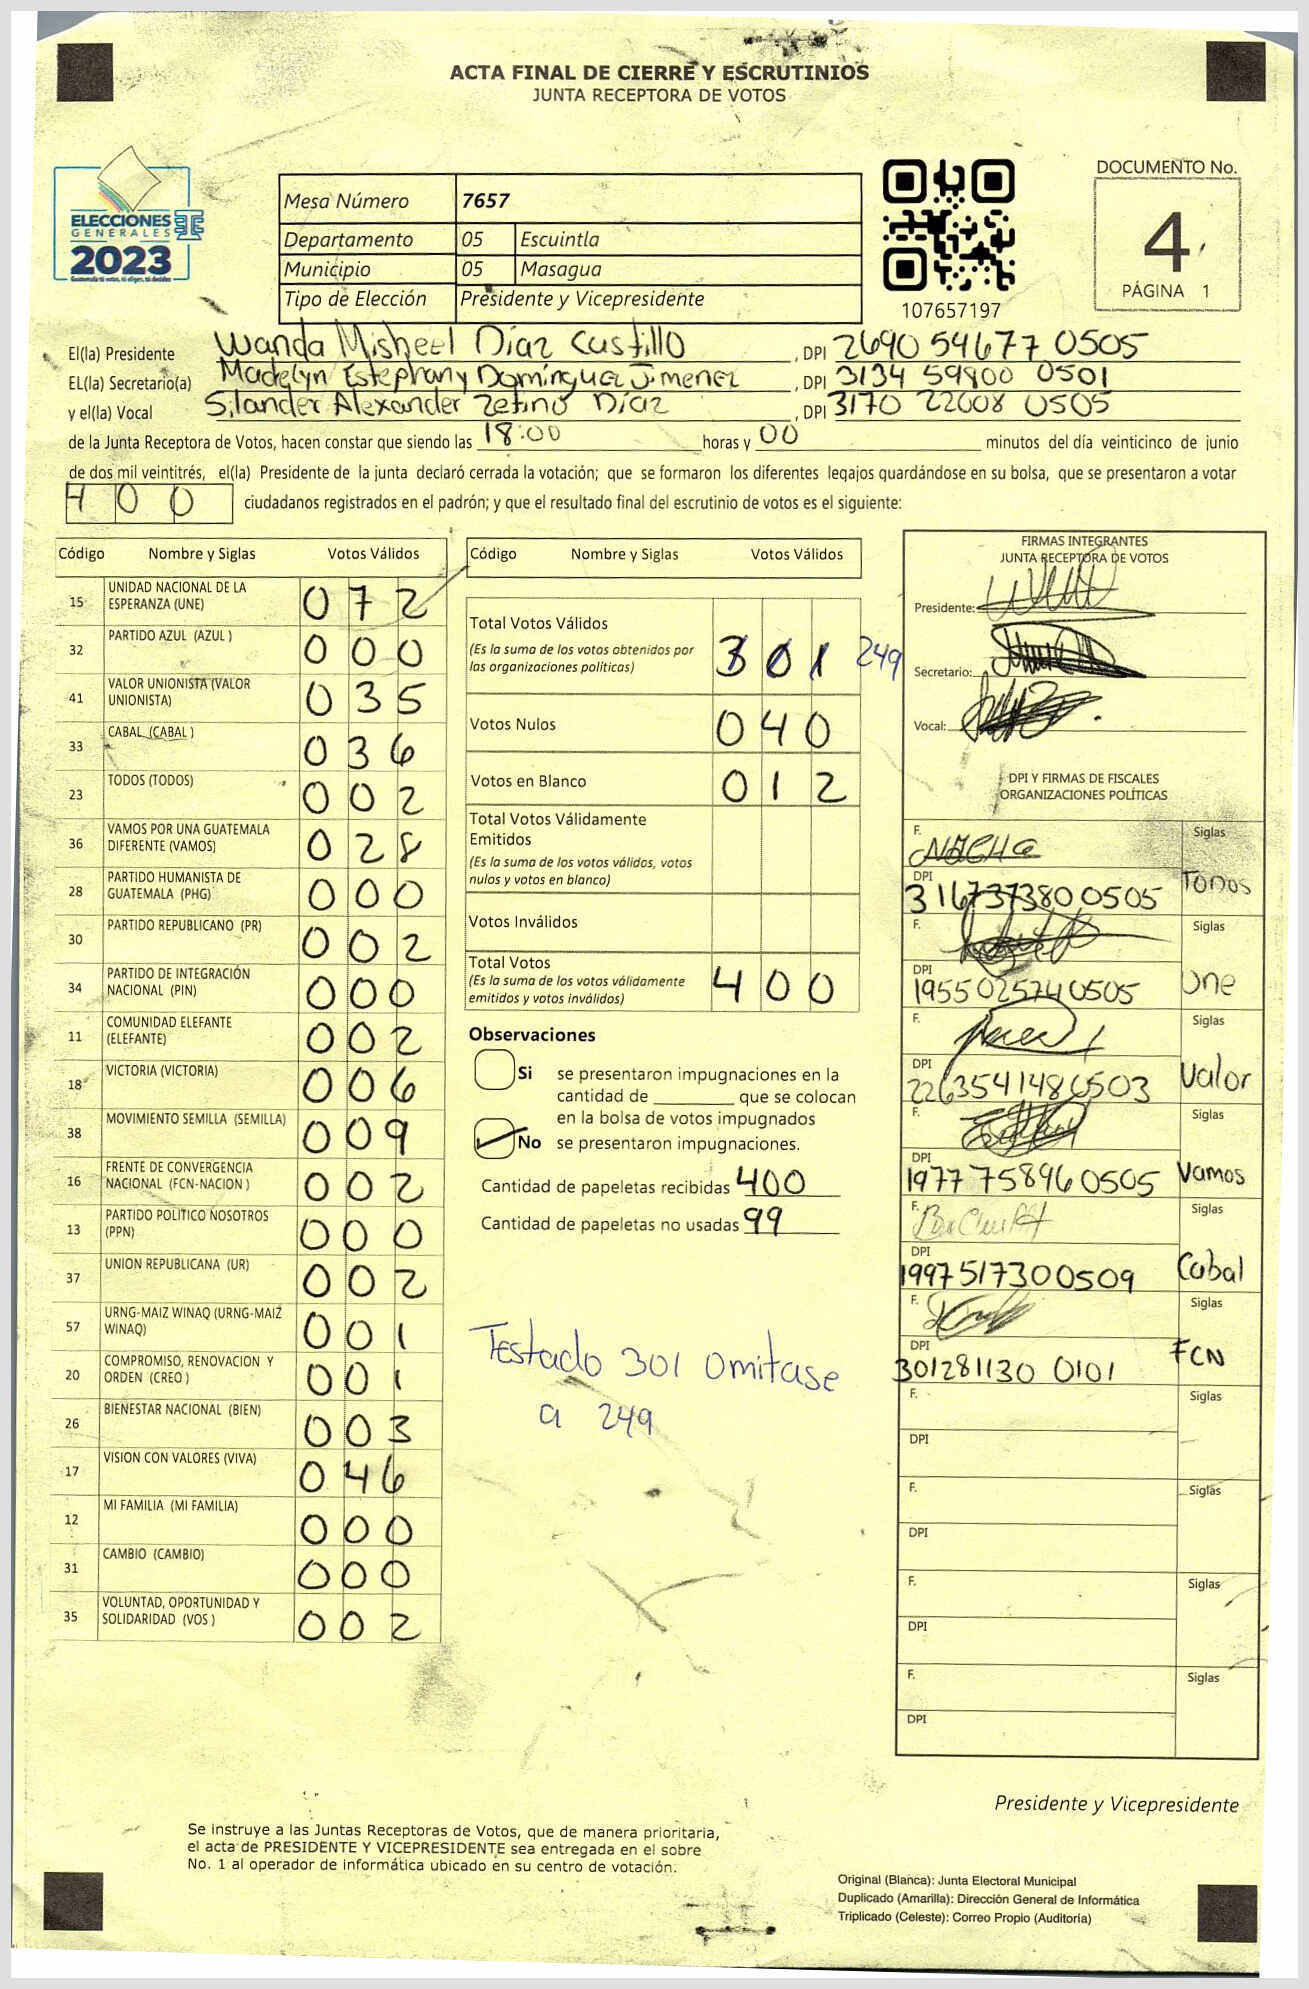 ACTA FINAL DE CIERRE Y ESCRUTINIOS
JUNTA RECEPTORA DE VOTOS
ELECCIONES
GENERALES
2023
Mesa Número 7657
Departamento 05 Escuintla
Municipio 05 Masagua
Tipo de Elección Presidente y Vicepresidente
107657197
DOCUMENTO No.
4
PÁGINA 1
El(la) Presidente Wanda Misheel Díaz Castillo, DPI 2690 54677 0505
EL(la) Secretario(a) Madelyn Estephany Domínguez Jimenez, DPI 3134 59800 0501
y el(la) Vocal Silander Alexander Zetino Díaz, DPI 3170 22008 0505
de la Junta Receptora de Votos, hacen constar que siendo las 18:00 horas y 00 minutos del día veinticinco de junio
de dos mil veintitrés, el(la) Presidente de la junta declaró cerrada la votación; que se formaron los diferentes legajos quardándose en su bolsa, que se presentaron a votar
400 ciudadanos registrados en el padrón; y que el resultado final del escrutinio de votos es el siguiente:
Código Nombre y Siglas Votos Válidos
15 UNIDAD NACIONAL DE LA ESPERANZA (UNE) 072
32 PARTIDO AZUL (AZUL ) 000
41 VALOR UNIONISTA (VALOR UNIONISTA) 035
33 CABAL (CABAL ) 036
23 TODOS (TODOS) 002
36 VAMOS POR UNA GUATEMALA DIFERENTE (VAMOS) 028
28 PARTIDO HUMANISTA DE GUATEMALA (PHG) 000
30 PARTIDO REPUBLICANO (PR) 002
34 PARTIDO DE INTEGRACIÓN NACIONAL (PIN) 000
11 COMUNIDAD ELEFANTE (ELEFANTE) 002
18 VICTORIA (VICTORIA) 006
38 MOVIMIENTO SEMILLA (SEMILLA) 009
16 FRENTE DE CONVERGENCIA NACIONAL (FCN-NACION ) 002
13 PARTIDO POLITICO NOSOTROS (PPN) 000
37 UNION REPUBLICANA (UR) 002
57 URNG-MAIZ WINAQ (URNG-MAIZ WINAQ) 001
20 COMPROMISO, RENOVACION Y ORDEN (CREO ) 001
26 BIENESTAR NACIONAL (BIEN) 003
17 VISION CON VALORES (VIVA) 046
12 MI FAMILIA (MI FAMILIA) 000
31 CAMBIO (CAMBIO) 000
35 VOLUNTAD, OPORTUNIDAD Y SOLIDARIDAD (VOS ) 002
Código Nombre y Siglas Votos Válidos
Total Votos Válidos
(Es la suma de los votos obtenidos por las organizaciones políticas) 301 249
Votos Nulos 040
Votos en Blanco 012
Total Votos Válidamente Emitidos
(Es la suma de los votos válidos, votos nulos y votos en blanco)
Votos Inválidos
Total Votos
(Es la suma de los votos válidamente emitidos y votos inválidos) 400
Observaciones
Si se presentaron impugnaciones en la
cantidad de ________ que se colocan
en la bolsa de votos impugnados
No se presentaron impugnaciones.
Cantidad de papeletas recibidas 400
Cantidad de papeletas no usadas 99
Testado 301 Omitase
a 249
FIRMAS INTEGRANTES
JUNTA RECEPTORA DE VOTOS
Presidente:
Secretario:
Vocal:
DPI Y FIRMAS DE FISCALES
ORGANIZACIONES POLÍTICAS
F. Siglas
DPI 3167373800505 Todos
F. Siglas
DPI 1955025740505 Une
F. Siglas
DPI 2263541480503 Valor
F. Siglas
DPI 1977758960505 Vamos
F. Siglas
DPI 1997517300509 Cabal
F. Siglas
DPI 301281130 0101 FCN
F. Siglas
DPI
F. Siglas
DPI
F. Siglas
DPI
F. Siglas
DPI
Presidente y Vicepresidente
Se instruye a las Juntas Receptoras de Votos, que de manera prioritaria,
el acta de PRESIDENTE Y VICEPRESIDENTE sea entregada en el sobre
No. 1 al operador de informática ubicado en su centro de votación.
Original (Blanca): Junta Electoral Municipal
Duplicado (Amarilla): Dirección General de Informática
Triplicado (Celeste): Correo Propio (Auditoría)